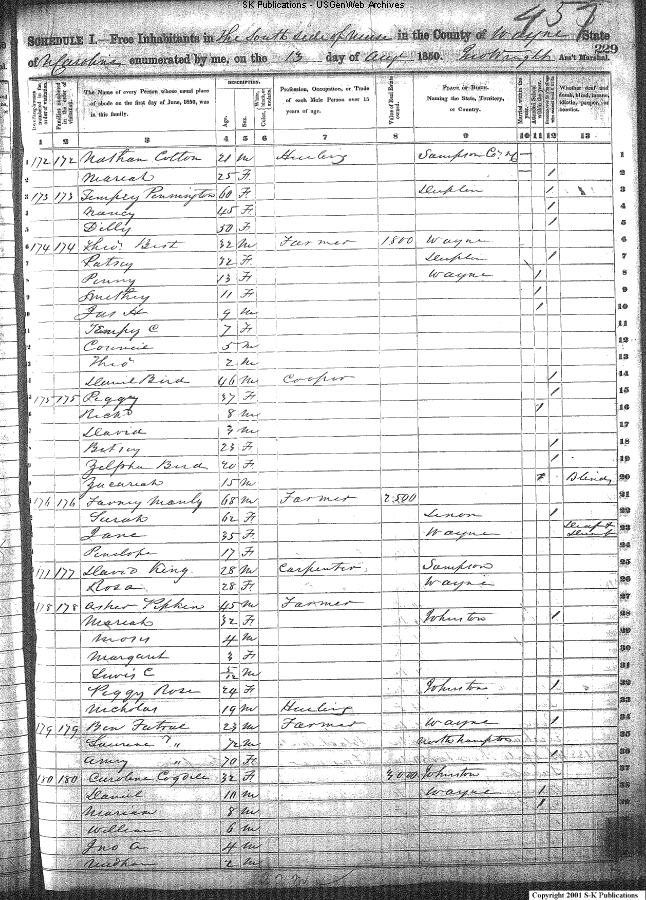 SK Publications - USGenWeb Archives
457
SCHEDULE I.-Free Inhabitants in the South side of Neuse in the County of Wayne State
229
of N Carolina enumerated by me, on the 13 day of Augt 1850. Jno Wright Ass't Marshal.
Dwelling-houses numbered in the order of visitation.
Families numbered in the order of visitation.
The Name of every Person whose usual place of abode on the first day of June, 1850, was in this family.
DESCRIPTION.
Age.
Sex.
Profession, Occupation, or Trade of each Male Person over 15 years of age.
Value of Real Estate owned.
PLACE OF BIRTH. Naming the State, Territory, or Country.
Married within the year.
Whether deaf and dumb, blind, insane, idiotic, pauper, or convict.
1 2 3 4 5 6 7 8 9 10 11 12 13
1 172 172 Nathan Cotton 21 M Sampson Co 1
2 Mariah 25 F / 2
3 173 173 Tempey Pennington 60 F Duplin / 3
4 Nancy 45 F / 4
5 Dilly 50 F / 5
6 174 174 Theo. Best 32 M Farmer 1800 Wayne 6
7 Patsey 32 F Duplin / 7
8 Penny 13 F Wayne / 8
Smithey 11 F / 9
Jas H 9 M / 10
Tempy C 7 F 11
Council 5 M 12
Theo 2 M 13
Daniel Bird 46 M Cooper / 14
175 175 Peggy 37 F / 15
Richd 8 M / 16
David 3 M
Betsey 23 F / 18
Zilpha Bird 20 F / 19
Zacariah 15 M Blind 20
176 176 Manly 68 M Farmer 2500 21
Sarah 62 F Lenoir / 22
Jane 35 F Wayne Deaf & Dumb 23
Penelope 17 F 24
177 177 David King 28 M Carpenter Sampson 25
Rosa 28 F Wayne 26
178 178 Asher Pipkin 45 M Farmer
Mariah 32 F Johnston / 28
Moses 4 M
Margaret 3 F
Lewis C 5/12 M 31
Peggy Rose 24 F Johnston / 32
Nicholas 19 M
179 179 Ben Futral 23 M Farmer Wayne / 34
" 72 M Northhampton 35
Amy " 70 F / 36
180 180 Caroline Cogdell 32 F 3000 Johnston / 37
Daniel 10 M Wayne / 38
Mariam 8 M /
William 6 M
Jno A. 4 M
Needham 2 M
Copyright 2001 S-K Publications